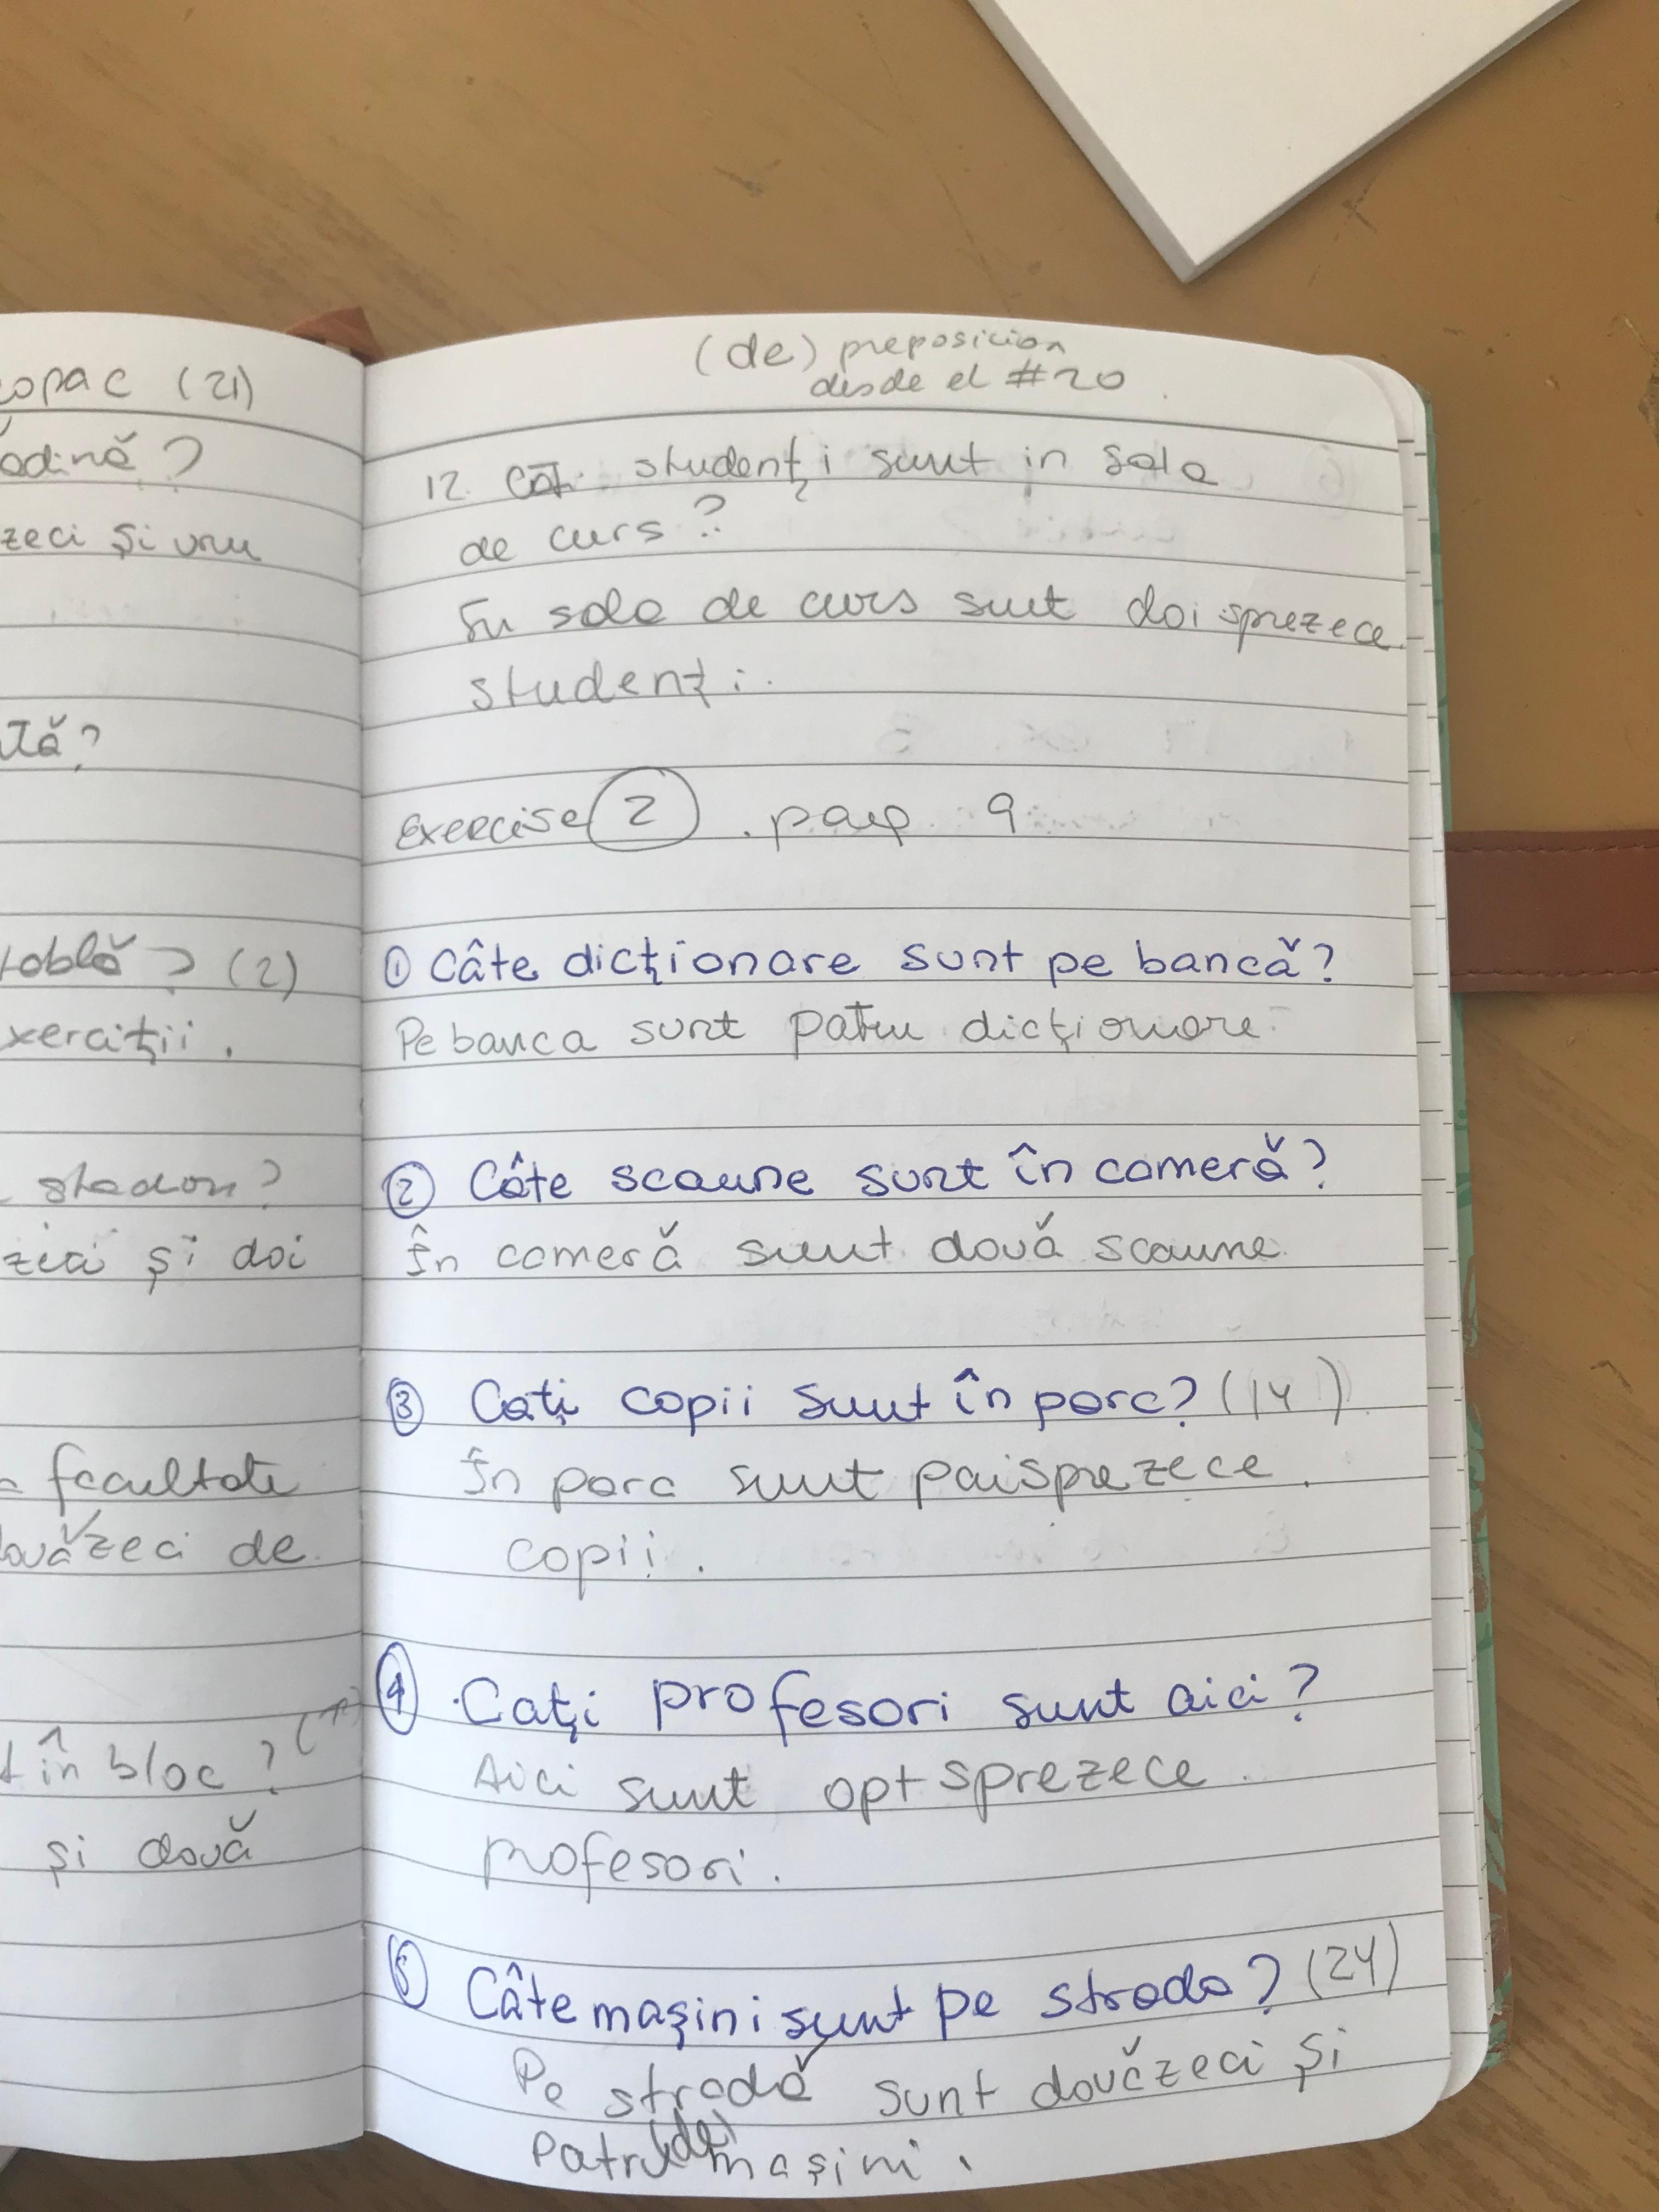 copac (21)
odină?
zeci și unu
tă?
tablă? (2)
xerciții.
stadion?
zeci și doi
facultate
ouăzeci de
t în bloc?
și două
(de) preposicion
desde el #20
12. Câți studenți sunt in sala
de curs?
În sala de curs sunt doisprezece
studenți.
Exercise 2. pag 9
① Câte dicționare sunt pe bancă?
Pe banca sunt patru dicționare
② Câte scaune sunt în cameră?
În cameră sunt două scaune
③ Cați copii sunt în parc? (14)
În parc sunt paisprezece
copii.
④ Cați profesori sunt aici?
Aici sunt optsprezece
profesori.
⑤ Câte mașini sunt pe strada? (24)
Pe stradă sunt douăzeci și
patru (de) mașini.